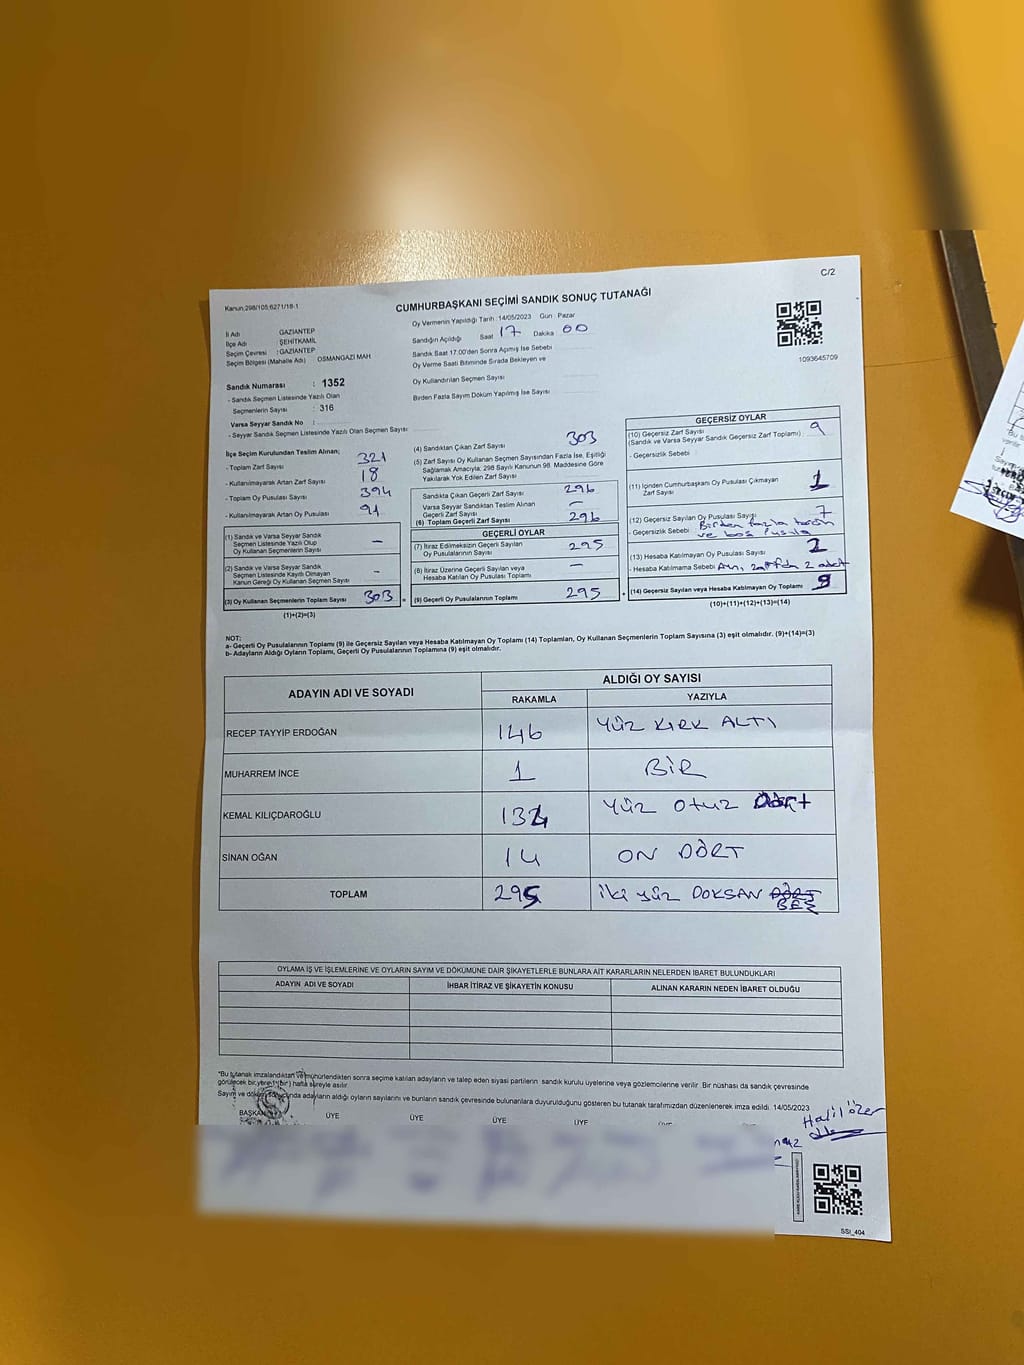 C/2
Kanun:298/105;6271/18-1
CUMHURBAŞKANI SEÇİMİ SANDIK SONUÇ TUTANAĞI
İl Adı GAZİANTEP
İlçe Adı : ŞEHİTKAMİL
Seçim Çevresi : GAZİANTEP
Seçim Bölgesi (Mahalle Adı) OSMANGAZİ MAH.
Oy Vermenin Yapıldığı Tarih :14/05/2023 Gün : Pazar
Sandığın Açıldığı Saat 17 Dakika : 00
Sandık Saat 17:00'den Sonra Açımış İse Sebebi
Oy Verme Saati Bitiminde Sırada Bekleyen ve
Oy Kullandırılan Seçmen Sayısı
Birden Fazla Sayım Döküm Yapılmış İse Sayısı
1093645709
Sandık Numarası : 1352
- Sandık Seçmen Listesinde Yazılı Olan
Seçmenlerin Sayısı : 316
Varsa Seyyar Sandık No :
- Seyyar Sandık Seçmen Listesinde Yazılı Olan Seçmen Sayısı
İlçe Seçim Kurulundan Teslim Alınan;
- Toplam Zarf Sayısı 321
- Kullanılmayarak Artan Zarf Sayısı 18
- Toplam Oy Pusulası Sayısı 394
- Kullanılmayarak Artan Oy Pusulası 91
(1) Sandık ve Varsa Seyyar Sandık
Seçmen Listesinde Yazılı Olup
Oy Kullanan Seçmenlerin Sayısı -
(2) Sandık ve Varsa Seyyar Sandık
Seçmen Listesinde Kayıtlı Olmayan
Kanun Gereği Oy Kullanan Seçmen Sayısı -
(3) Oy Kullanan Seçmenlerin Toplam Sayısı 303 =
(1)+(2)=(3)
(4) Sandıktan Çıkan Zarf Sayısı 303
(5) Zarf Sayısı Oy Kullanan Seçmen Sayısından Fazla İse, Eşitliği
Sağlamak Amacıyla; 298 Sayılı Kanunun 98. Maddesine Göre
Yakılarak Yok Edilen Zarf Sayısı
Sandıkta Çıkan Geçerli Zarf Sayısı 296
Varsa Seyyar Sandıktan Teslim Alınan
Geçerli Zarf Sayısı -
(6) Toplam Geçerli Zarf Sayısı 296
GEÇERLİ OYLAR
(7) İtiraz Edilmeksizin Geçerli Sayılan
Oy Pusulalarının Sayısı 295
(8) İtiraz Üzerine Geçerli Sayılan veya
Hesaba Katılan Oy Pusulası Toplamı -
(9) Geçerli Oy Pusulalarının Toplamı 295 +
GEÇERSİZ OYLAR
(10) Geçersiz Zarf Sayısı
(Sandık ve Varsa Seyyar Sandık Geçersiz Zarf Toplamı)
- Geçersizlik Sebebi
(11) İçinden Cumhurbaşkanı Oy Pusulası Çıkmayan
Zarf Sayısı 1
(12) Geçersiz Sayılan Oy Pusulası Sayısı 7
- Geçersizlik Sebebi Birden fazla
ve boş Pusula
(13) Hesaba Katılmayan Oy Pusulası Sayısı
- Hesaba Katılmama Sebebi Aynı zarfda 2 adet
(14) Geçersiz Sayılan veya Hesaba Katılmayan Oy Toplamı 9
(10)+(11)+(12)+(13)=(14)
NOT:
a- Geçerli Oy Pusulalarının Toplamı (9) ile Geçersiz Sayılan veya Hesaba Katılmayan Oy Toplamı (14) Toplamları, Oy Kullanan Seçmenlerin Toplam Sayısına (3) eşit olmalıdır. (9)+(14)=(3)
b- Adayların Aldığı Oyların Toplamı, Geçerli Oy Pusulalarının Toplamına (9) eşit olmalıdır.
ADAYIN ADI VE SOYADI
ALDIĞI OY SAYISI
RAKAMLA YAZIYLA
RECEP TAYYİP ERDOĞAN 146 YÜZ KIRK ALTI
MUHARREM İNCE 1 BİR
KEMAL KILIÇDAROĞLU 134 YÜZ Otuz Dört
SİNAN OĞAN 14 ON DÖRT
TOPLAM 295 iki yüz DOKSAN DÖRT
BEŞ
OYLAMA İŞ VE İŞLEMLERİNE VE OYLARIN SAYIM VE DÖKÜMÜNE DAİR ŞİKAYETLERLE BUNLARA AİT KARARLARIN NELERDEN İBARET BULUNDUKLARI
ADAYIN ADI VE SOYADI İHBAR İTİRAZ VE ŞİKAYETİN KONUSU ALINAN KARARIN NEDEN İBARET OLDUĞU
*Bu tutanak imzalandıktan ve mühürlendikten sonra seçime katılan adayların ve talep eden siyasi partilerin sandık kurulu üyelerine veya gözlemcilerine verilir. Bir nüshası da sandık çevresinde
görülecek bir yere 1 (bir) hafta süreyle asılır.
Sayım ve döküm sonucunda adayların aldığı oyların sayılarını ve bunların sandık çevresinde bulunanlara duyurulduğunu gösteren bu tutanak tarafımızdan düzenlenerek imza edildi. 14/05/2023
BAŞKAN ÜYE ÜYE ÜYE ÜYE
Halil özer
SSI_404